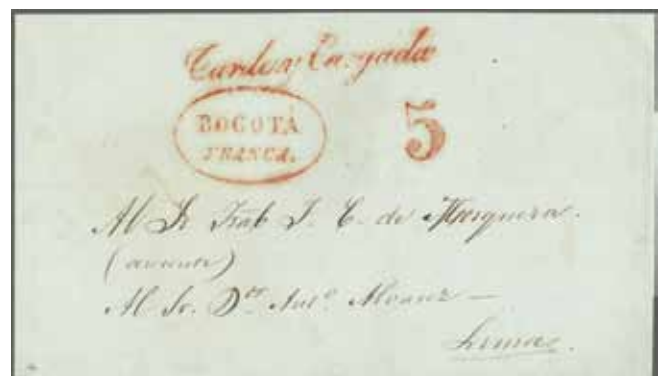 Tarde y Cargada
BOGOTÁ
FRANCA.
5
Al Sr Gral T. C. de Mosquera.
(ausente)
Al Sr. Dor Anto Alvarez —
Lima.